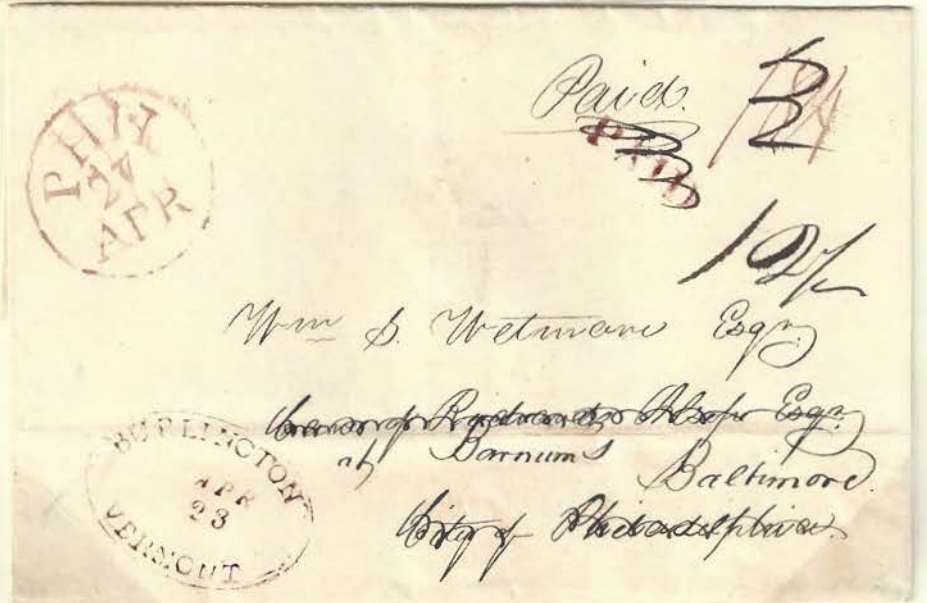 Paid.
PAID
PHIL
27
APR
12½
Wm S. Wetmore Esqr
Care of Richard Alsop Esqr
at Barnums
Baltimore.
City of Philadelphia
BURLINGTON
APR
23
VERMONT